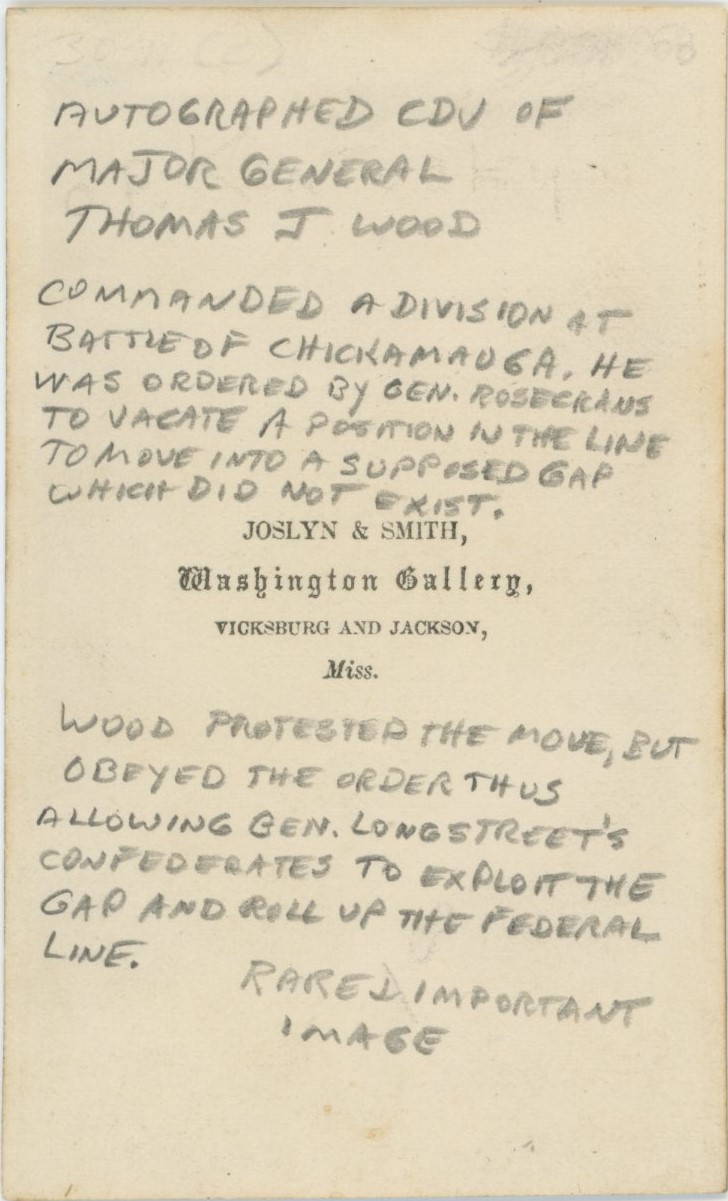 AUTOGRAPHED CDV OF
MAJOR GENERAL
THOMAS J WOOD
COMMANDED A DIVISION AT
BATTLE OF CHICKAMAUGA. HE
WAS ORDERED BY GEN. ROSECRANS
TO VACATE A POSITION IN THE LINE
TO MOVE INTO A SUPPOSED GAP
WHICH DID NOT EXIST.
JOSLYN & SMITH,
Washington Gallery,
VICKSBURG AND JACKSON,
Miss.
WOOD PROTESTED THE MOVE, BUT
OBEYED THE ORDER THUS
ALLOWING GEN. LONGSTREET'S
CONFEDERATES TO EXPLOIT THE
GAP AND ROLL UP THE FEDERAL
LINE.
RARE & IMPORTANT
IMAGE